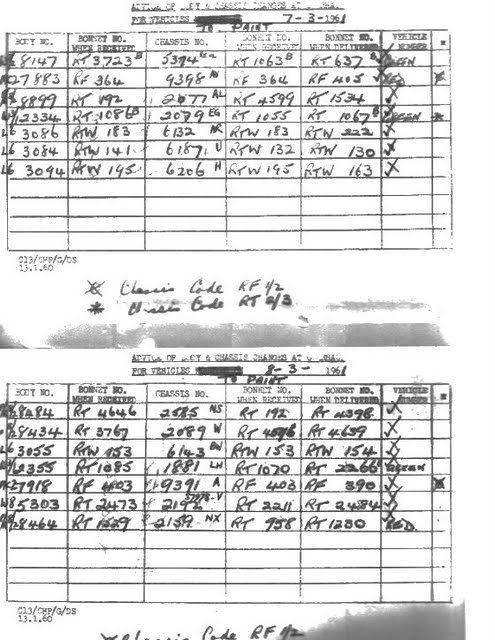 ADVICE OF BODY & CHASSIS CHANGES AT
FOR VEHICLES TO PAINT 7-3-1961
BODY NO. BONNET NO. WHEN RECEIVED CHASSIS NO. BONNET NO. WHEN RECEIVED BONNET NO. WHEN DELIVERED VEHICLE NUMBER *
8147 RT 3723 B RT 1063 B RT 637 B GREEN
27883 RF 364 9398 RF 364 RF 405 RED
8899 RT 192 2077 AL RT 4599 RT 1534
2334 RT 1086 B 2079 EG RT 1055 RT 1067 B GREEN *
L6 3086 RTW 183 6132 RTW 183 RTW 222
L6 3084 RTW 141 6187 U RTW 132 RTW 130
L6 3094 RTW 195 6206 H RTW 195 RTW 163
C13/CHP/G/DS
13.1.60
Chassis Code RF 1/2
* Chassis Code RT 2/3
ADVICE OF BODY & CHASSIS CHANGES AT
FOR VEHICLES TO PAINT 8-3-1961
BODY NO. BONNET NO. WHEN RECEIVED CHASSIS NO. BONNET NO. WHEN RECEIVED BONNET NO. WHEN DELIVERED VEHICLE NUMBER *
8484 RT 4646 2585 NS RT 192 RT 4398
8434 RT 3767 2089 W RT RT 4639
L6 3055 RTW 153 6143 RTW 153 RTW 154
2355 RT 1085 1881 LH RT 1070 RT 2266 GREEN
27918 RF 403 9391 A RF 403 RF 390
5303 RT 2473 RT 2211 RT 2484
8464 RT 2159 NX RT 958 RT 1230 RED
C13/CHP/G/DS
13.1.60
Chassis Code RF 1/2